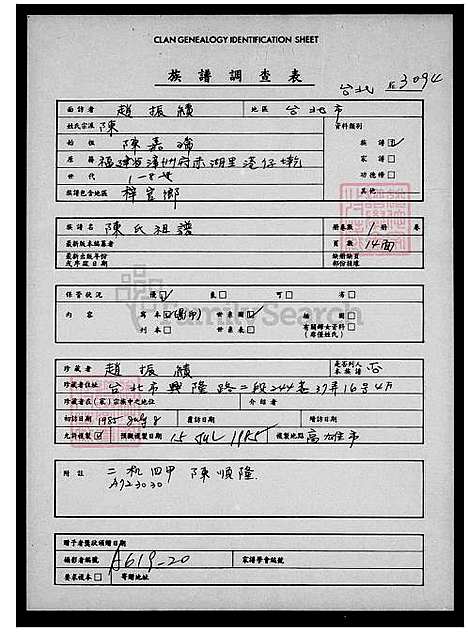 CLAN GENEALOGY IDENTIFICATION SHEET
族譜調查表
台北 3094
面訪者 趙振績 地區 台北市
姓氏宗派 陳 資料類別
始祖 陳嘉瑞 族譜
原籍 福建省漳州府赤湖里 家譜
世代 功德榜
族譜包含地區 梓官鄉 其他
族譜名 陳氏祖譜 冊卷數 1 冊 卷
最新版本編纂者 頁數 14面
最新出版年份 缺冊缺頁
或序跋日期 部份損壞
保管狀況 優 良 可 劣
內容 寫本(影印) 世系圖 插圖
刊本 世系表 有關婦女資料
珍藏者 趙振績 是否列入本族譜 否
珍藏者住址 台北市興隆路二段244巷37弄16號4F
珍藏者在(家)宗族中之地位 介紹者
初訪日期 1985 July 8 覆訪日期 增訪日期
允許複製 預擬複製日期 15 Jul 1985 複製地點 高雄市
附註 二机四甲 陳順隆
贈予者獎狀頒贈日期
攝影者編號 A619-20 家譜學會編號
要求複本 寄贈地址
FamilySearch